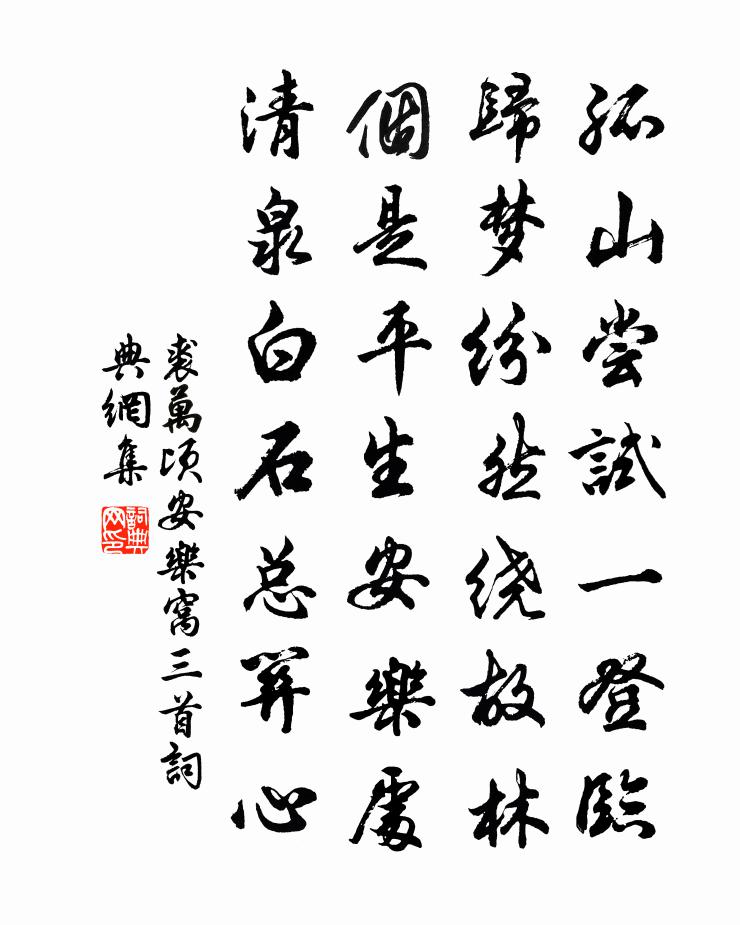 孤山尝試一登臨
歸梦紛然绕故林
個是平生安樂處
清泉白石总關心
裘萬頃安樂窩三首詞
典網集
詞典
网印